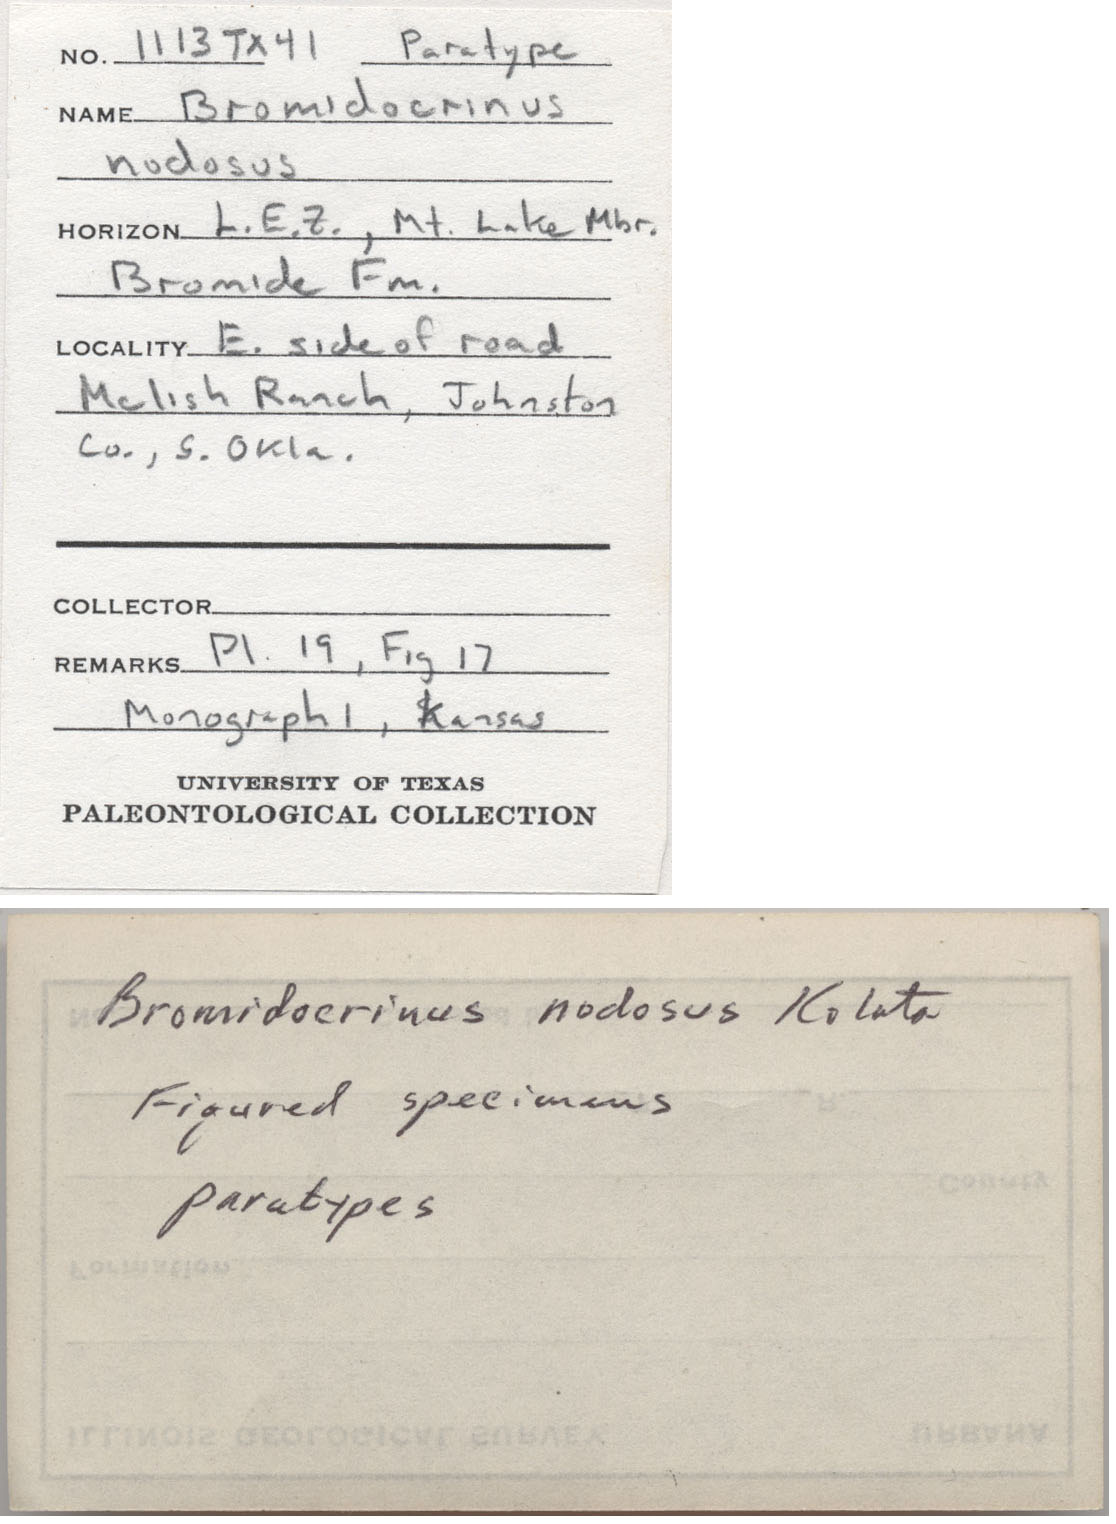 NO. 1113TX41 Paratype
NAME Bromidocrinus
nodosus
HORIZON L.E.Z., Mt. Lake Mbr.
Bromide Fm.
LOCALITY E. side of road
Mclish Ranch, Johnston
Co., S. Okla.
COLLECTOR
REMARKS Pl. 19, Fig 17
Monograph 1, Kansas
UNIVERSITY OF TEXAS
PALEONTOLOGICAL COLLECTION
Bromidocrinus nodosus Kolata
Figured specimens
R.
paratypes
County
Formation
ILLINOIS GEOLOGICAL SURVEY URBANA